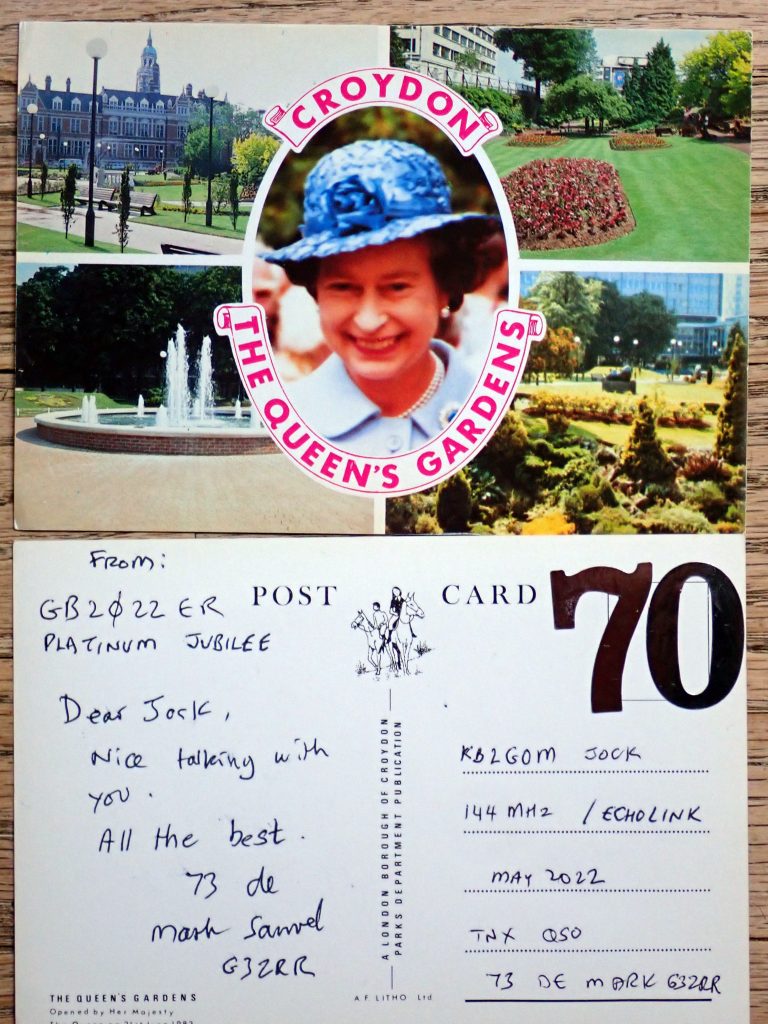 CROYDON
THE QUEEN'S GARDENS
FROM:
GB2Ø22 ER
PLATINUM JUBILEE
POST CARD
70
Dear Jock,
Nice talking with
you.
All the best.
73 de
Mark
G3ZRR
A LONDON BOROUGH OF CROYDON
PARKS DEPARTMENT PUBLICATION
KB2GOM JOCK
144 MHz / ECHOLINK
MAY 2022
TNX QSO
73 DE MARK G3ZRR
THE QUEEN'S GARDENS
Opened by Her Majesty
A.F. LITHO Ltd